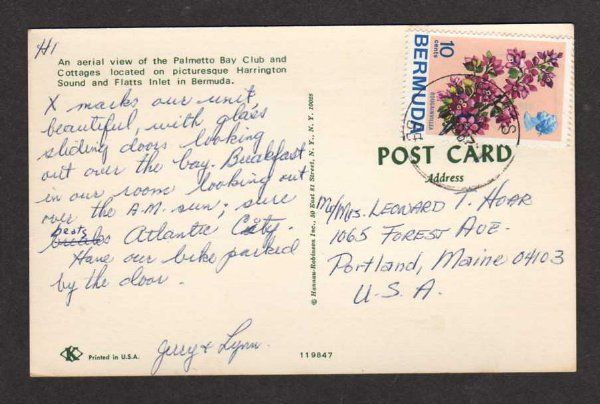 Hi
An aerial view of the Palmetto Bay Club and
Cottages located on picturesque Harrington
Sound and Flatts Inlet in Bermuda.
X marks our unit,
beautiful, with glass
sliding doors looking
out over the bay. Breakfast
in our room looking out
over the A.M. sun; sure
beats Atlantic City.
Have our bike parked
by the door.
Jerry & Lynn.
K
Printed in U.S.A.
119847
© Hannau-Robinson Inc., 30 East 81 Street, N. Y., N. Y. 10028
BERMUDA
10
cents
BOUGAINVILLEA
POST CARD
Address
Mr/Mrs. Leonard T. Hoar
1065 Forest Ave.
Portland, Maine 04103
U.S.A.